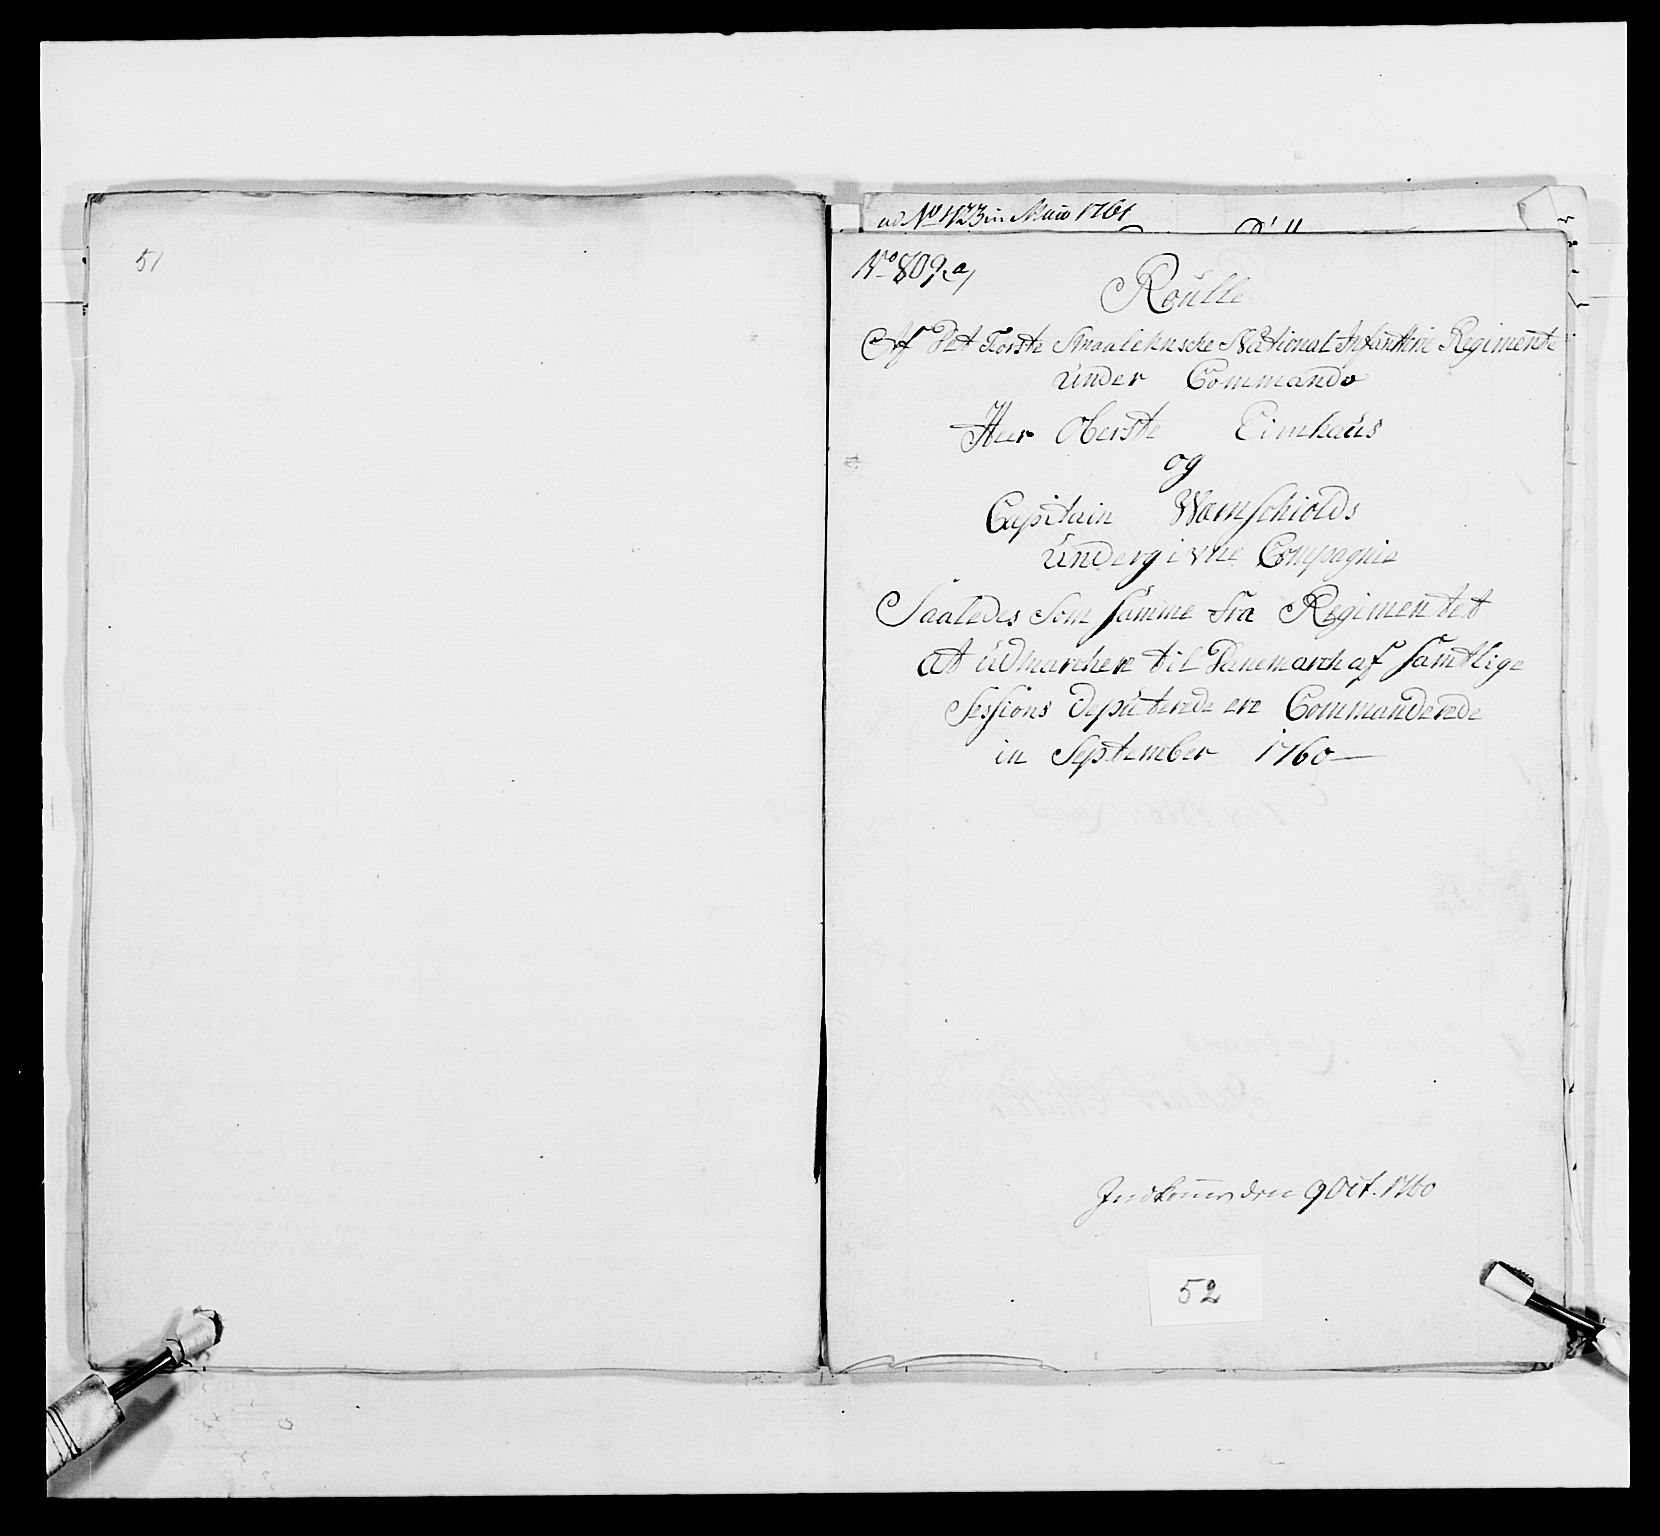 51
ad No 1723 in Maio 1761
No 809 a)
Roulle
Af Det Første Smaalehnsche National Infanterie Regimente
under Commando
Herr Oberste Eimhaus
og
Capitain Wornschiolds
undergivne Compagnie
Saaledes som samme fra Regimentet
at udmarchere til Danemarch af samtlige
Sessions deputerede ere Commanderede
in September 1760
Indkom den 9 Oct. 1760
52